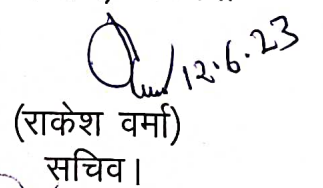 12.6.23
(राकेश वर्मा)
सचिव।